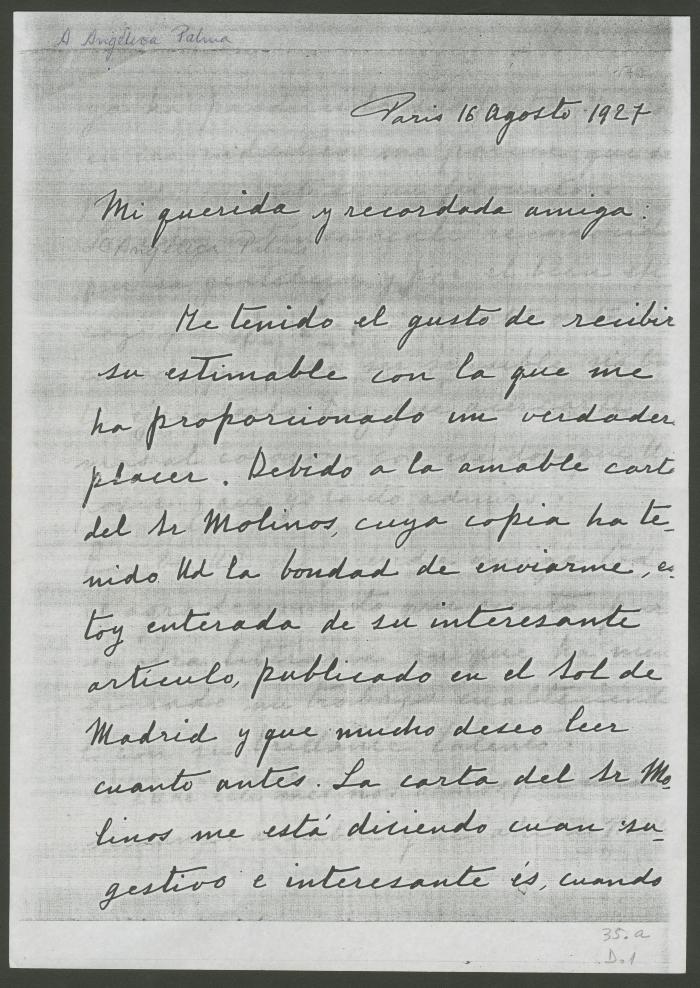 A Angélica Palma
Paris 16 Agosto 1927
Mi querida y recordada amiga:
Angélica Palma
He tenido el gusto de recibir
su estimable con la que me
ha proporcionado un verdader
placer. Debido a la amable carta
del Sr Molinos, cuya copia ha te-
nido Ud la bondad de enviarme, es
toy enterada de su interesante
artículo, publicado en el Sol de
Madrid y que mucho deseo leer
cuanto antes. La carta del Sr Mo-
linos me está diciendo cuan su-
gestivo e interesante és, cuando
35.a
D.1